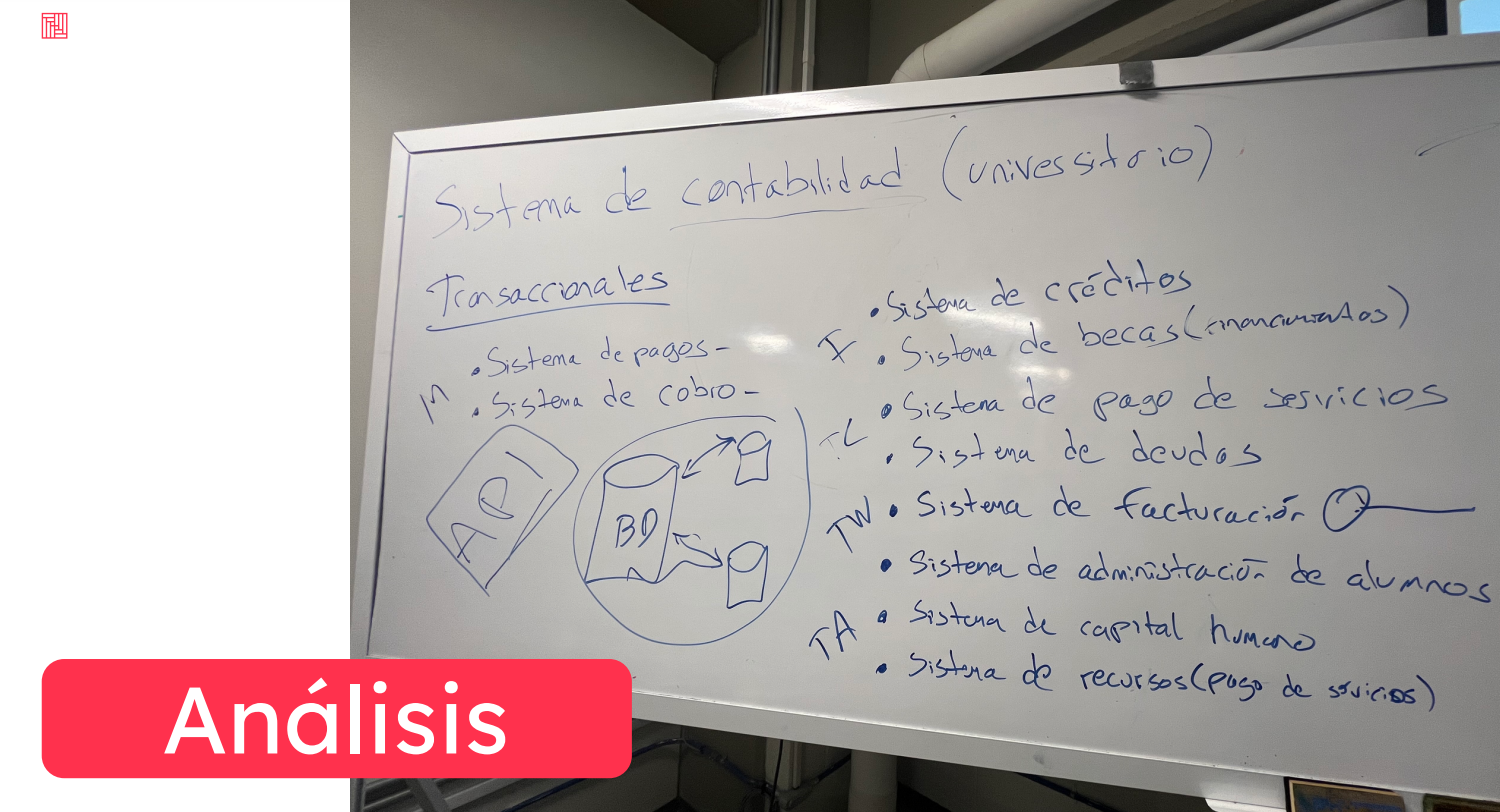 Sistema de contabilidad (univessitorio)
Transaccionales
M
• Sistema de pagos -
• Sistema de cobro -
API
BD
• Sistema de créditos
• Sistema de becas (financiamientos)
• Sistema de pago de sesvicios
TL
• Sistema de deudas
TW • Sistema de facturación
• Sistema de administración de alumnos
TA • Sistema de capital humano
• Sistema de recursos (pago de servicios)
Análisis